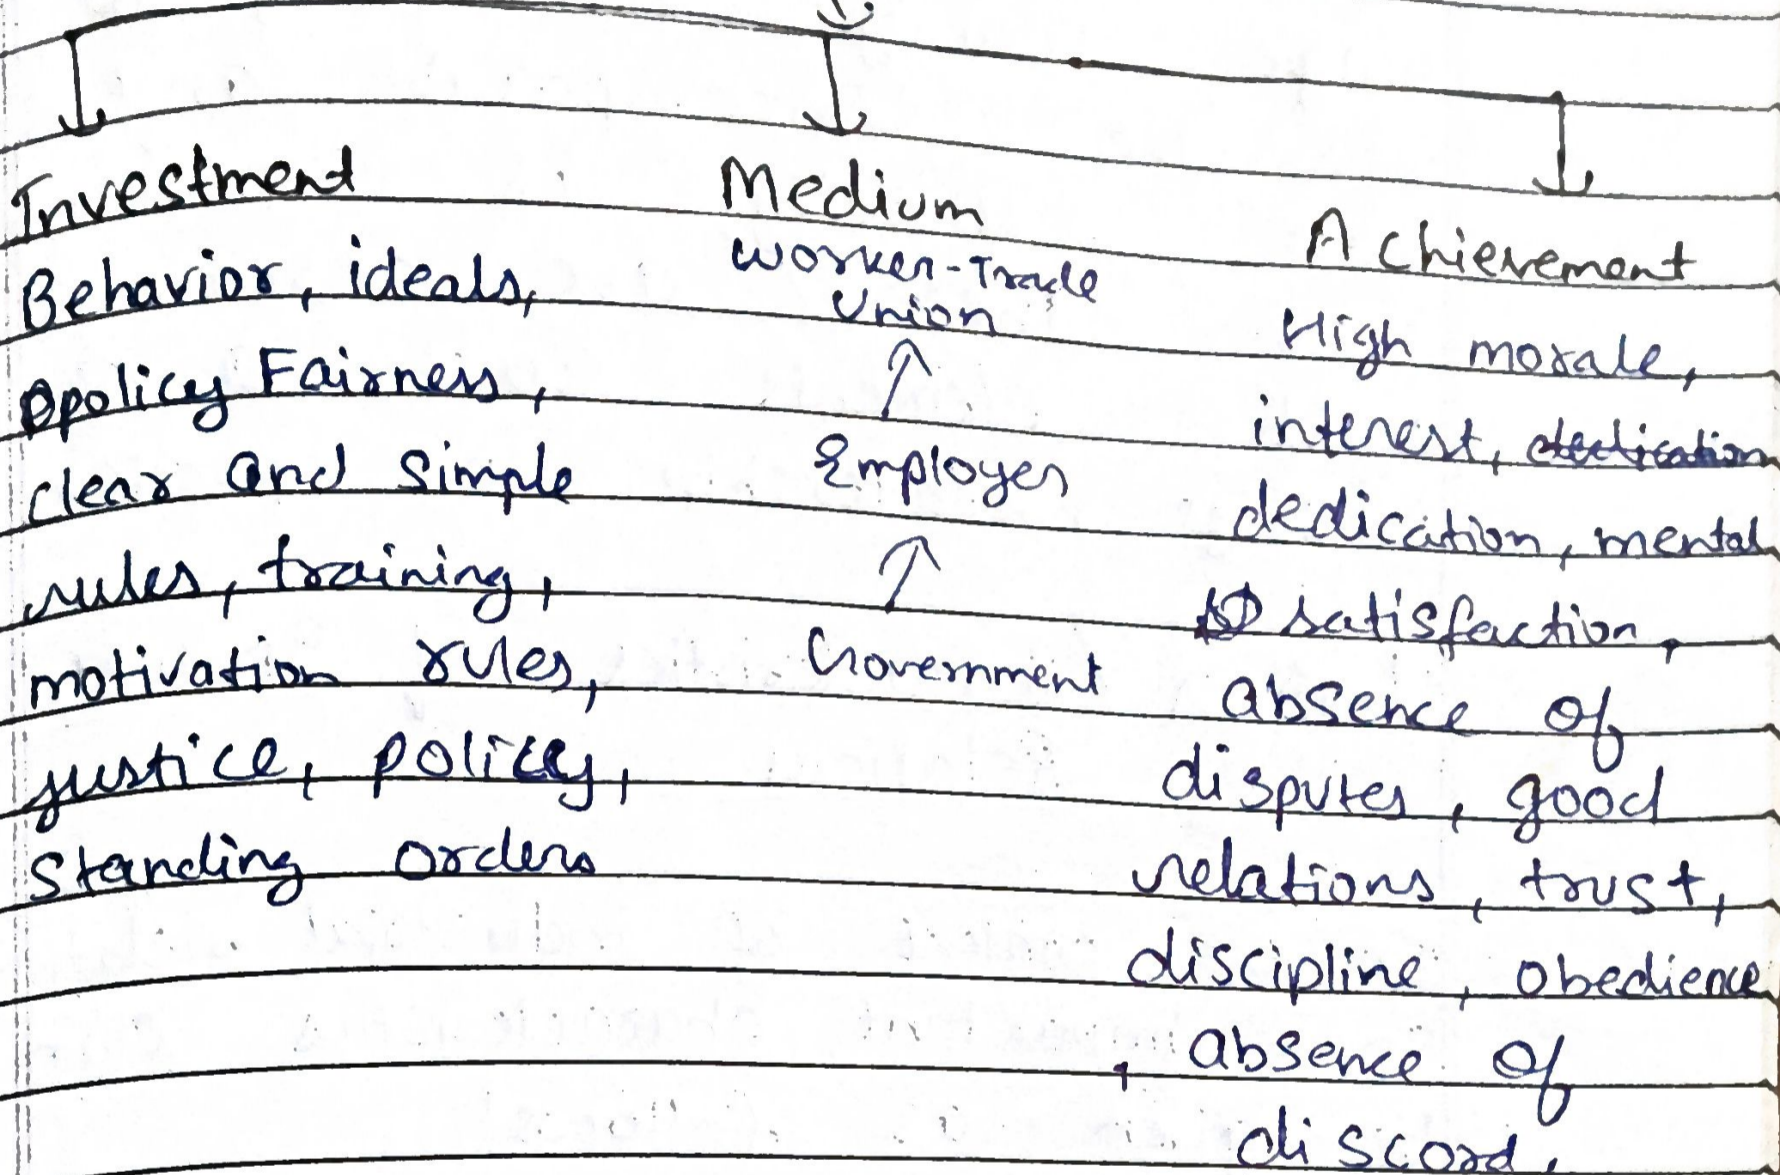 Investment
Behavior, ideals,
policy Fairness,
clear and simple
rules, training,
motivation rules,
justice, policy,
Standing orders
Medium
Worker-Trade
Union
Employer
Government
Achievement
High morale,
interest, dedication
dedication, mental
satisfaction,
absence of
disputes, good
relations, trust,
discipline, obedience
, absence of
discord.